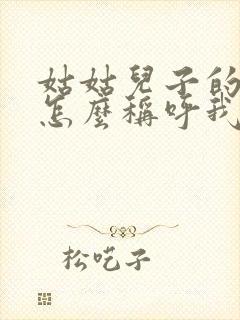 姑姑兒子的
怎麼稱呼我
松吃子